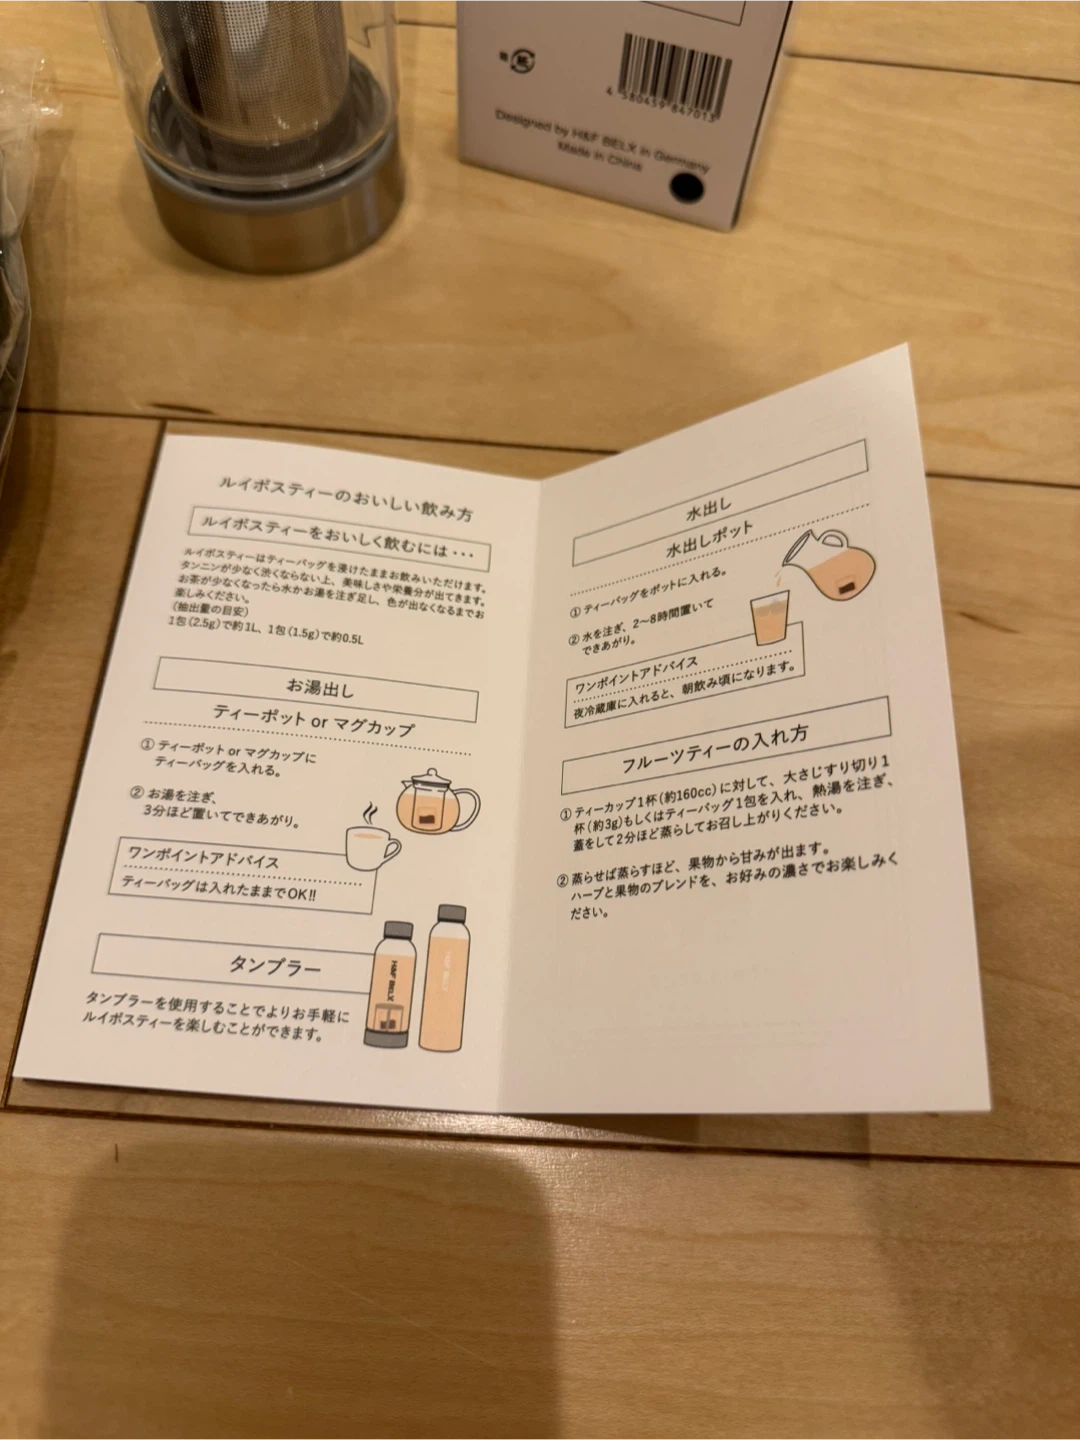 4 580459 847013
Designed by H&F BELX in Germany
Made in China
ルイボスティーのおいしい飲み方
ルイボスティーをおいしく飲むには・・・
ルイボスティーはティーバッグを浸けたままお飲みいただけます。
タンニンが少なく渋くならない上、美味しさや栄養分が出てきます。
お茶が少なくなったら水かお湯を注ぎ足し、色が出なくなるまでお
楽しみください。
(抽出量の目安)
1包(2.5g)で約1L、1包(1.5g)で約0.5L
お湯出し
ティーポット or マグカップ
① ティーポット or マグカップに
ティーバッグを入れる。
② お湯を注ぎ、
3分ほど置いてできあがり。
ワンポイントアドバイス
ティーバッグは入れたままでOK!!
タンブラー
タンブラーを使用することでよりお手軽に
ルイボスティーを楽しむことができます。
H&F BELX
H&F BELX
水出し
水出しポット
① ティーバッグをポットに入れる。
② 水を注ぎ、2〜8時間置いて
できあがり。
ワンポイントアドバイス
夜冷蔵庫に入れると、朝飲み頃になります。
フルーツティーの入れ方
① ティーカップ1杯(約160cc)に対して、大さじすり切り1
杯(約3g)もしくはティーバッグ1包を入れ、熱湯を注ぎ、
蓋をして2分ほど蒸らしてお召し上がりください。
② 蒸らせば蒸らすほど、果物から甘みが出ます。
ハーブと果物のブレンドを、お好みの濃さでお楽しみく
ださい。